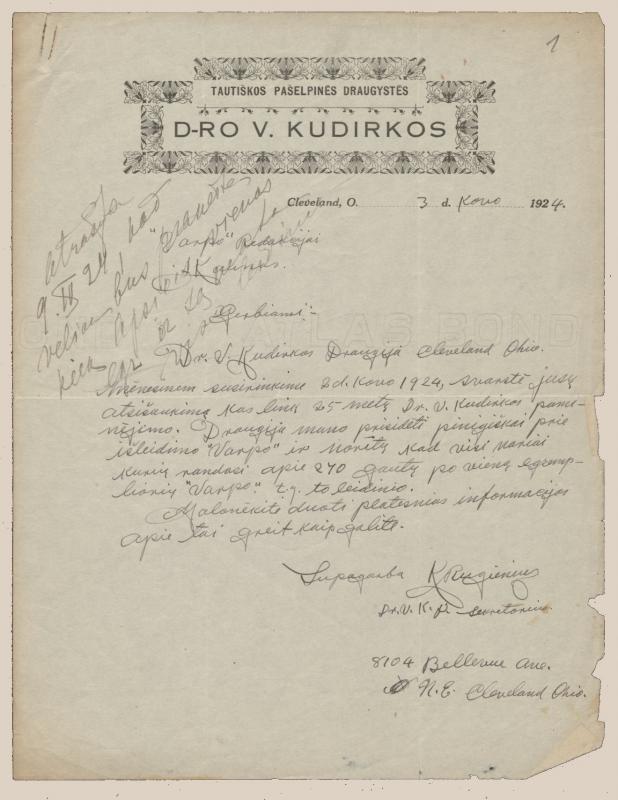 1
TAUTIŠKOS PAŠELPINĖS DRAUGYSTĖS
D-RO V. KUDIRKOS
Cleveland, O. 3 d. Kovo 1924.
"Varpo" Redakcijai
Gerbiami:-
Dr. V. Kudirkos Draugija Cleveland Ohio.
Mėnesinem susirinkime 2 d. Kovo 1924, svarstė jusų
atsišaukimą kas link 25 metų Dr. V. Kudirkos pami-
nėjimo. Draugija mano prisidėti pinigiškai prie
išleidimo "Varpo" ir norėtų kad visi nariai
kurių randasi apie 270 gautų po vieną egzemp-
liorių "Varpo" t.y. to leidinio.
Malonėkite duoti platesnias informacijas
apie tai greit kaip galite.
Su pagarba K Rugienius
Dr. V. K. D. sekretorius
8104 Bellevue Ave.
N.E. Cleveland Ohio.
atrašyta
9 II 24 kad
vėliau bus pranešta
kiek apsi